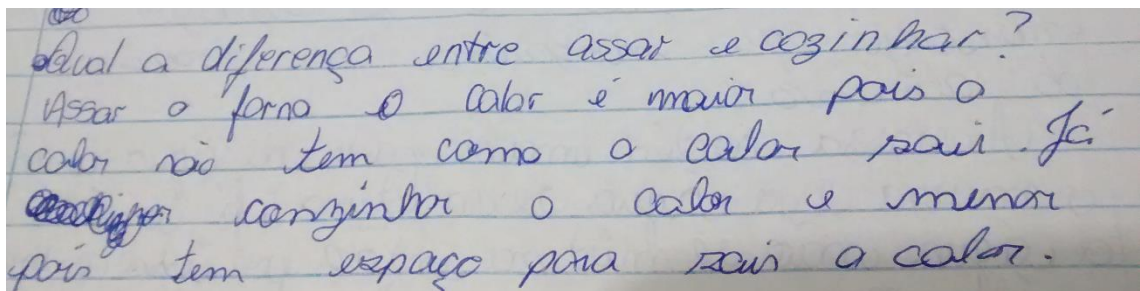 Qual a diferença entre assar e cozinhar?
Assar o forno o calor é maior pois o
calor não tem como o calor sair. Já
conzinhar o calor e menor
pois tem espaço para sair o calor.